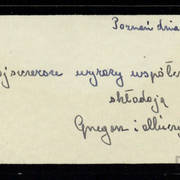 Poznań dnia
ajszczersze wyrazy współcz
składają
Grzegorz i